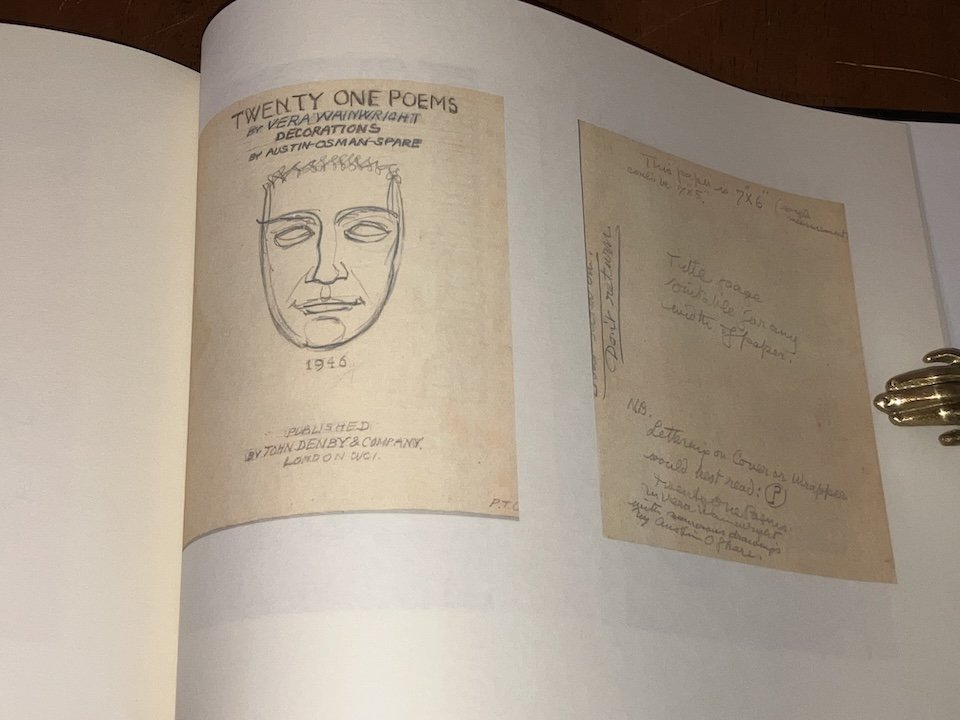 TWENTY ONE POEMS
BY VERA WAINWRIGHT
DECORATIONS
BY AUSTIN-OSMAN-SPARE
1946
PUBLISHED
BY JOHN DENBY & COMPANY.
LONDON WC1.
P.T.O
This paper is 7"x6" (rough
measurement
could be 7x5"
Don't return
Title page
suitable for any
width of paper.
NB.
Lettering on Cover or Wrapper
would best read: (?)
Twenty One Poems.
by Vera Wainwright
with numerous drawings
by Austin O Spare.